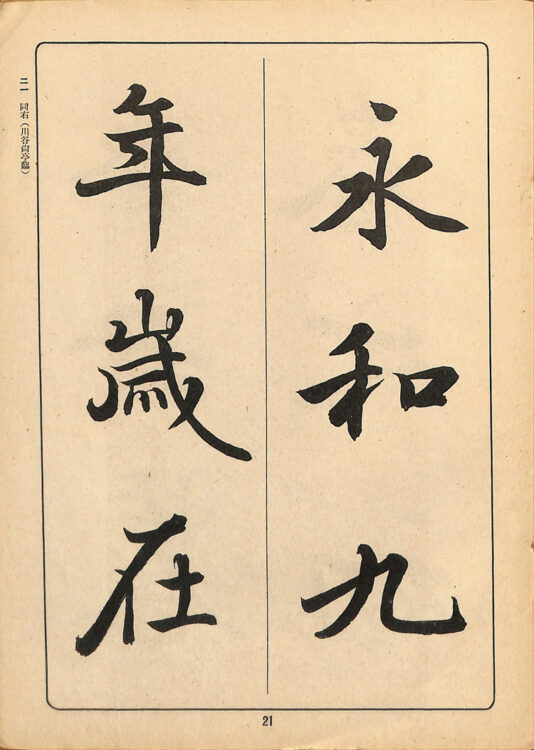 永和九
年歲在
二一 同右（川谷尚亭臨）
21